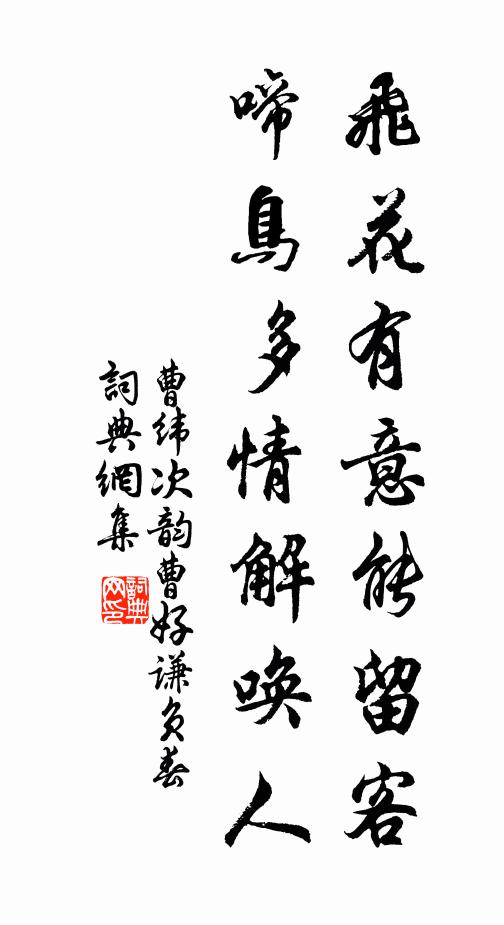 飛花有意能留客
啼鳥多情解喚人
曹緯次韵曹好謙負春
詞典網集
詞典网印